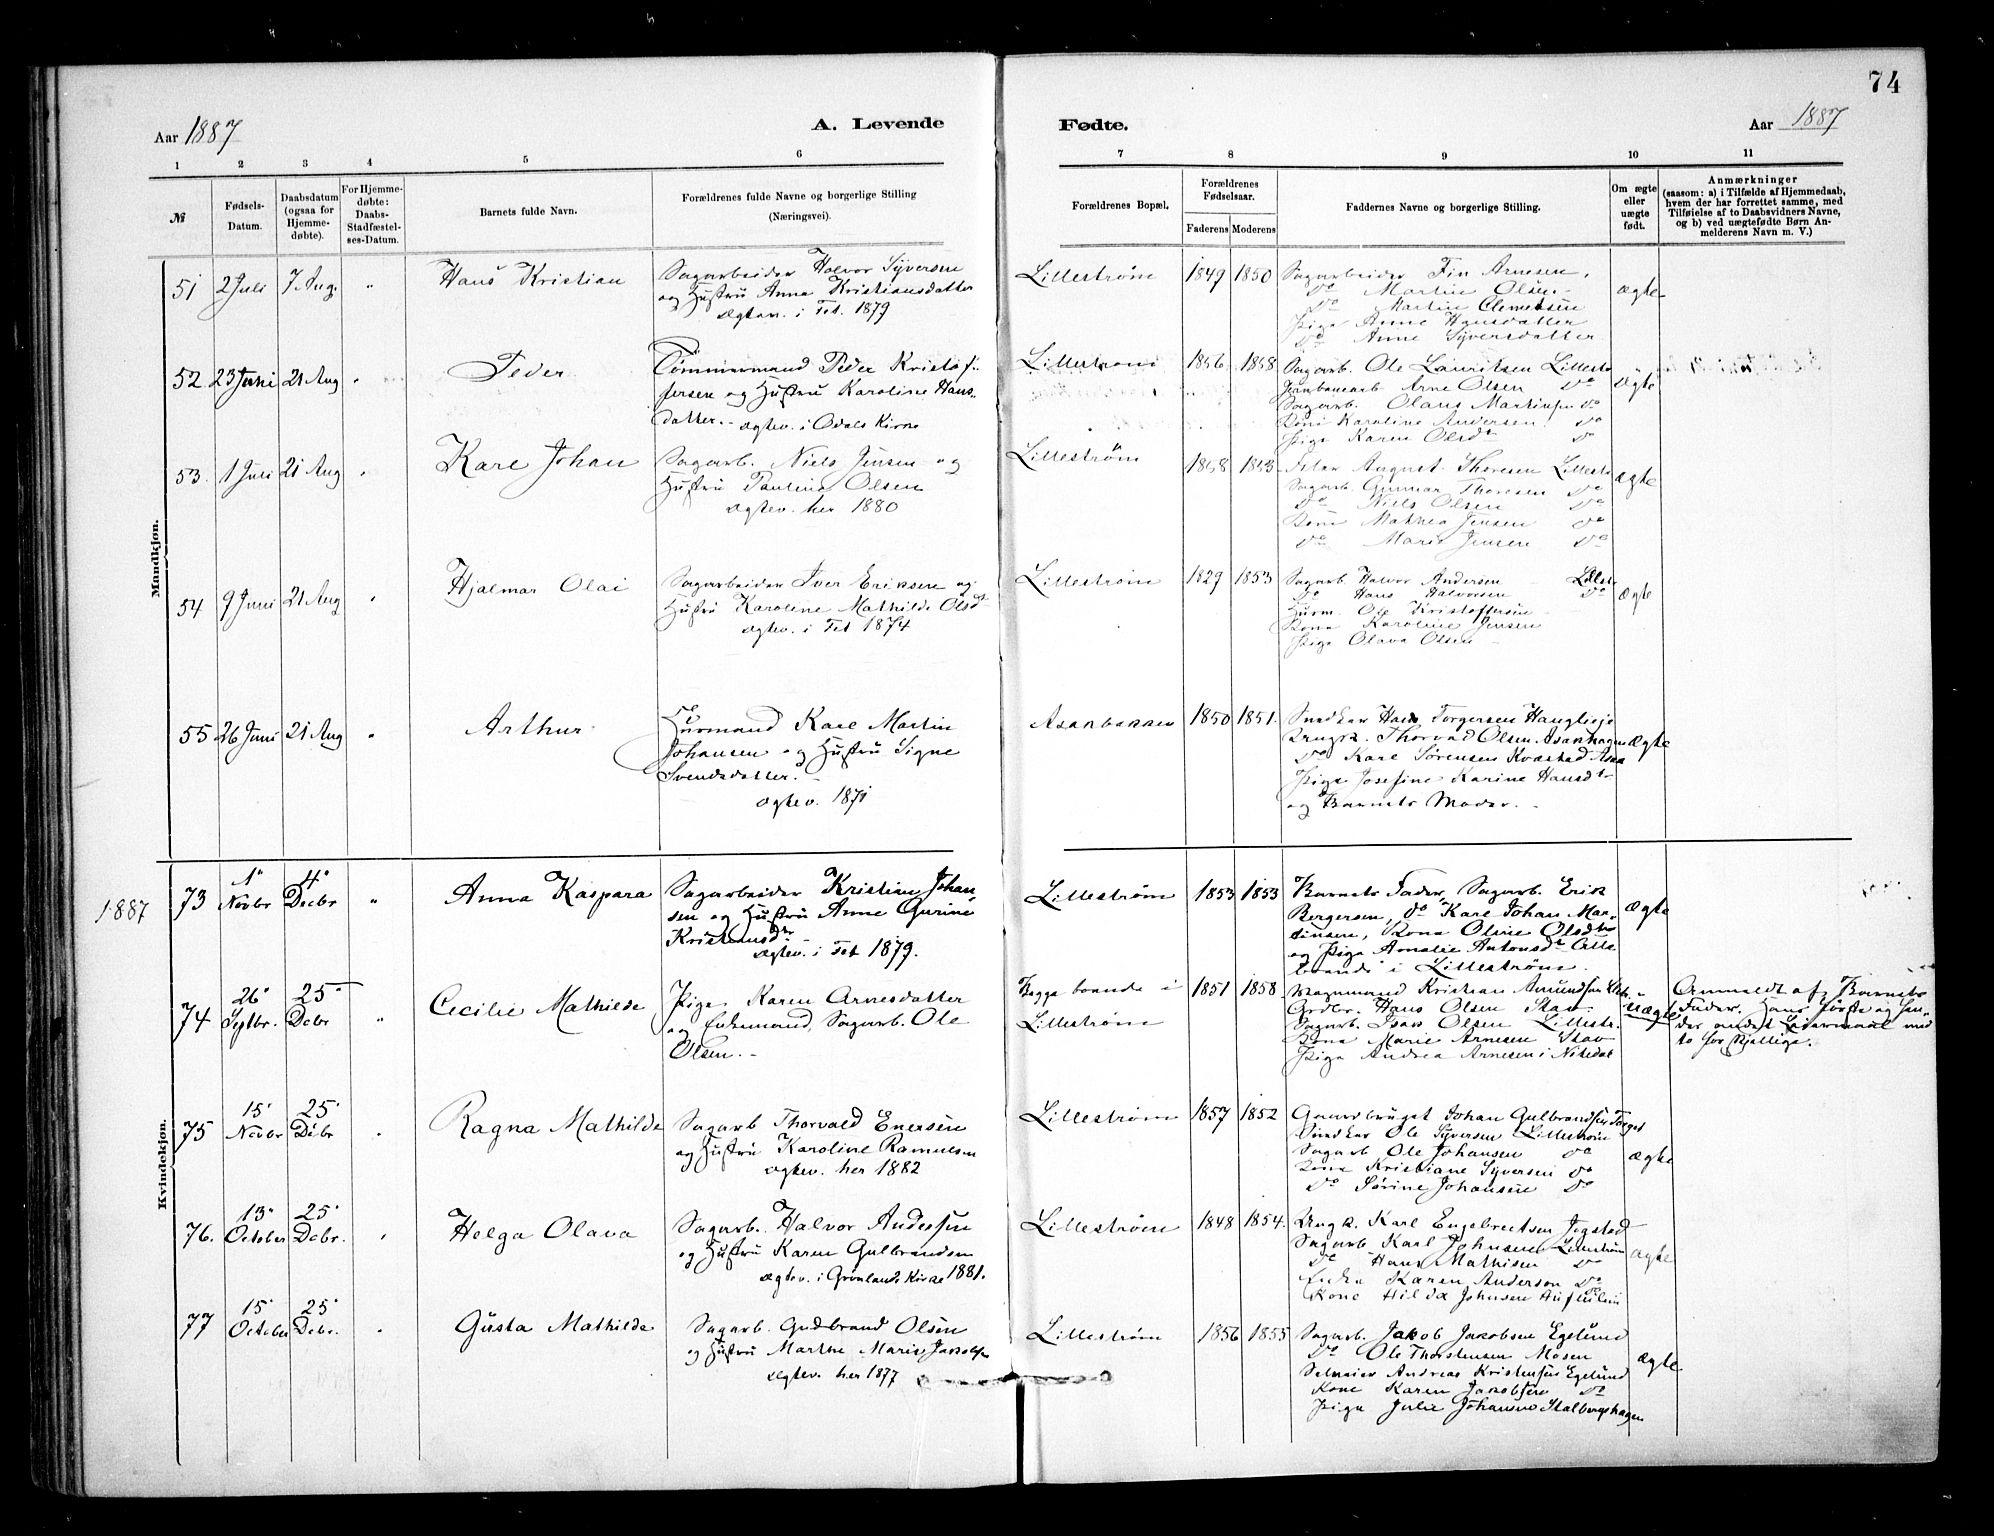 74
Aar 1887
A. Levende
Fødte.
Aar 1887
1 2 3 4 5 6 7 8 9 10 11
№
Fødsels-
Datum.
Daabsdatum
(ogsaa for
Hjemme-
døbte).
For Hjemme-
døbte:
Daabs-
Stadfæstel-
ses-Datum.
Barnets fulde Navn.
Forældrenes fulde Navne og borgerlige Stilling
(Næringsvei).
Forældrenes Bopæl.
Forældrenes
Fødselsaar.
Faderens Moderens
Faddernes Navne og borgerlige Stilling.
Om ægte
eller
uægte
født.
Anmærkninger
(saasom: a) i Tilfælde af Hjemmedaab,
hvem der har forrettet samme, med
Tilføielse af to Daabsvidners Navne,
og b) ved uægtefødte Børn An-
melderens Navn m. V.)
Mandkjøn.
51 2 Juli 7 Aug. " Hans Kristian
Sagarbeider Halvor Syversen
og Hustru Anna Kristiansdatter
ægtev. i Fet. 1879
Lillestrøm 1849 1850
Sagarbeider Fin Arnesen,
Do Martin Olsen
Do Martin Clemetsen
Pige Anne Hansdatter
Do Anne Syversdatter
ægte
52 23 Juni 21 Aug " Peder
Tømmermand Peder Kristof-
fersen og Hustru Karoline Hans-
datter. ægtev. i Odals Kirke
Lillestrøm 1856 1858
Sagarb. Ole Lauritsen Lillestr
Jernbanearb Arne Olsen Do
Sagarb. Olaus Martinsen Do
Kone Karoline Andersen Do
Pige Karen Olsdt Do
ægte
53. 1 Juli 21 Aug " Karl Johan
Sagarb. Niels Jensen og
Hustru Pauline Olsen
ægtev. her 1880
Lillestrøm 1858 1853
August Thoresen Lillestr
Sagarb. Gunnar Thoresen Do
Do Niels Olsen Do
Kone Mathea Jensen Do
Do Marie Jensen Do
ægte
54 9 Juni 21 Aug " Hjalmar Olai
Sagarbeider Iver Eriksen og
Hustru Karoline Mathilde Olsdt
ægtev. i Fet 1874
Lillestrøm 1829 1853
Sagarb. Halvor Andersen Lillestr
Do Hans Halvorsen Do
Hurm. Ole Kristoffersen
Kone Karoline Jensen
Pige Olava Olsen
ægte
55 26 Juni 21 Aug " Arthur
Hurmand Karl Martin
Johansen og Hustru Signe
Svendsdatter.
ægtev. 1871
Asakbakken 1850 1851.
Snedker Hans Torgersen
Ungk. Thorvald Olsen.
Do Karl Sørensen Kvæstad Asak
Pige Josefine Karine Hansdtr
og Barnets Moder.
ægte
1887
Kvindekjøn.
73 1" Novbr 4" Decbr " Anna Kaspara
Sagarbeider Kristian Johan-
sen og Hustru Anne Gurine
Kristiansdtr
ægtev. i Fet 1879.
Lillestrøm 1853 1853
Barnets Fader, Sagarb. Erik
Bergersen, do Karl Johan Mar-
tinsen, Kone Oline Olsdtr
og Pige Amalie Antonsdt Alle
boende i Lillestrøm.
ægte
74 26" Septbr. 25" Debr " Cecilie Mathilde
Pige Karen Arnesdatter
og Enkemand, Sagarb. Ole
Olsen.
Begge boende i
Lillestrøm
1851 1858
Kristian Amundsen
Grdbr. Hans Olsen Stav.
Sagarb. Isak Olsen Lillestr.
Kone Marie Arnesen Stav
Pige Andrea Arnesen i Nitedal
uægte
Anmeldt af Barnets
Fader. Hans første og hen-
des andet Leiermaal med
to forskjellige.
75 15" Novbr 25" Debr " Ragna Mathilde
Sagarb Thorvald Enersen
og Hustru Karoline Ramulsen
ægtev. her 1882
Lillestrøm 1857 1852
Gaardbruger Johan Gulbrandsen
Snedker Ole Syversen Lillestrøm
Sagarb Ole Johansen Do
Kone Kristiane Syversen Do
Do Sørine Johansen Do
ægte
76. 13" October 25" Debr. " Helga Olava
Sagarb. Halvor Andersen
og Hustru Karen Gulbrandsen
ægtev. i Grønlands Kirke 1881.
Lillestrøm 1848 1854.
Ungk. Karl Engebretsen Jogstad
Sagarb Karl Johnsen Lillestrøm
Do Hans Mathisen Do
Enke Karen Anderson Do
Kone Hilda Johnsen
ægte
77 15" October 25" Debr. " Gusta Mathilde
Sagarb. Gudbrand Olsen
og Hustru Marthe Marie Jakobsen
ægtev. her 1877
Lillestrøm 1856 1855
Sagarb. Jakob Jakobsen Egelund
Do Ole Thorstensen Mosen
Andreas Kristensen Egelund
Kone Karen Jakobsen Do
Pige Julie Johansen Stalbergshagen
ægte